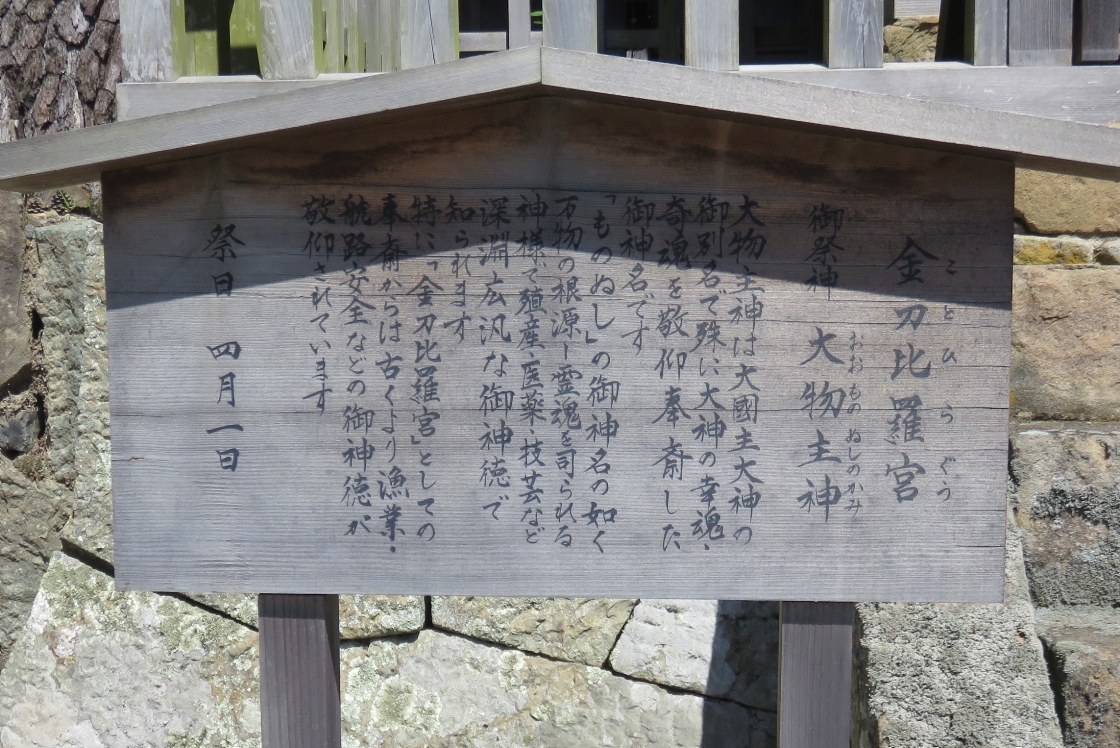 金刀比羅宮
ことひらぐう
御祭神 大物主神
おおものぬしのかみ
大物主神は大國主大神の
御別名で殊に大神の幸魂・
奇魂を敬仰奉斎した
御神名です
「ものぬし」の御神名の如く
万物の根源・霊魂を司られる
神様で殖産・医薬・技芸など
深淵広汎な御神徳で
知られます
特に「金刀比羅宮」としての
奉斎からは古くより漁業・
航路安全などの御神徳が
敬仰されています
祭日 四月一日